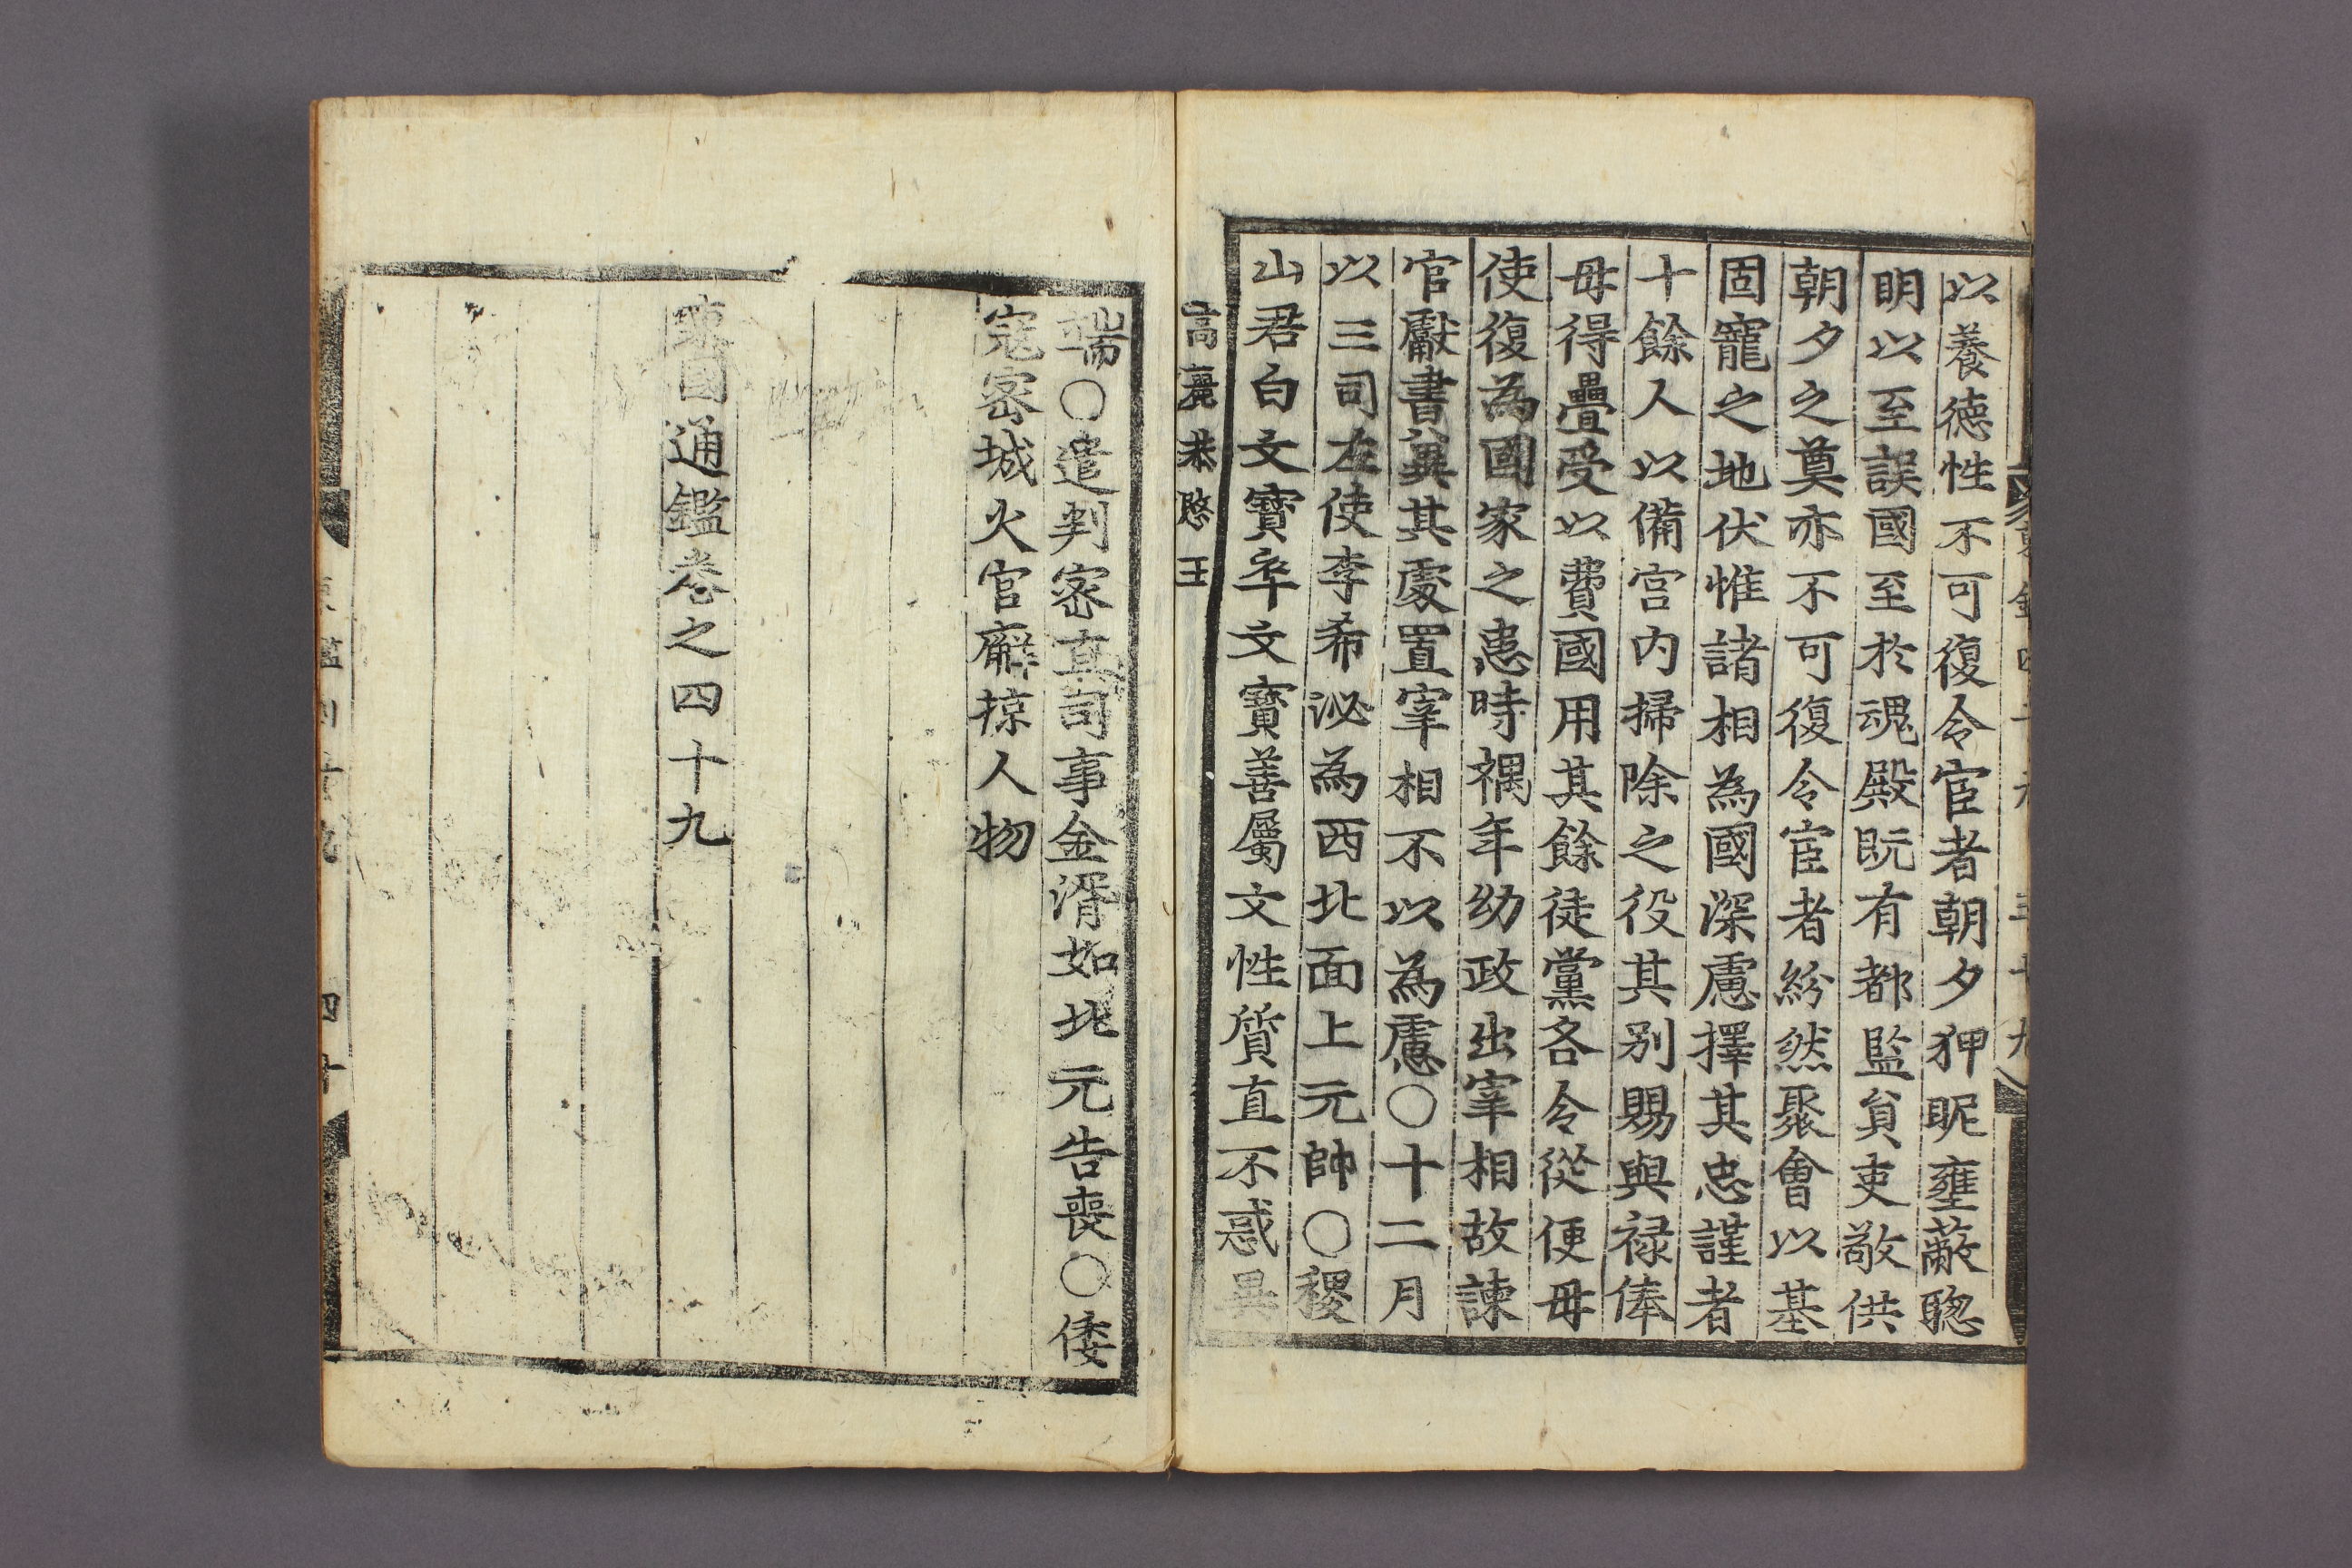 以養德性不可復令宦者朝夕狎昵壅蔽聦
明以至誤國至於魂殿既有都監負吏敬供
朝夕之奠亦不可復令宦者紛然聚會以基
固寵之地伏惟諸相爲國深慮擇其忠謹者
十餘人以備宮内掃除之役其别賜與禄俸
毋得疊受以費國用其餘徒黨各令從便毋
使復爲國家之患時禑年幼政出宰相故諫
官獻書冀其處置宰相不以爲慮○十二月
以三司左使李希泌爲西北面上元帥○稷
山君白文寳卒文寳善屬文性質直不惑異
高麗恭愍王
端○遣判密直司事金湑如北元告喪○倭
寇密城火官廨掠人物
東國通鑑卷之四十九